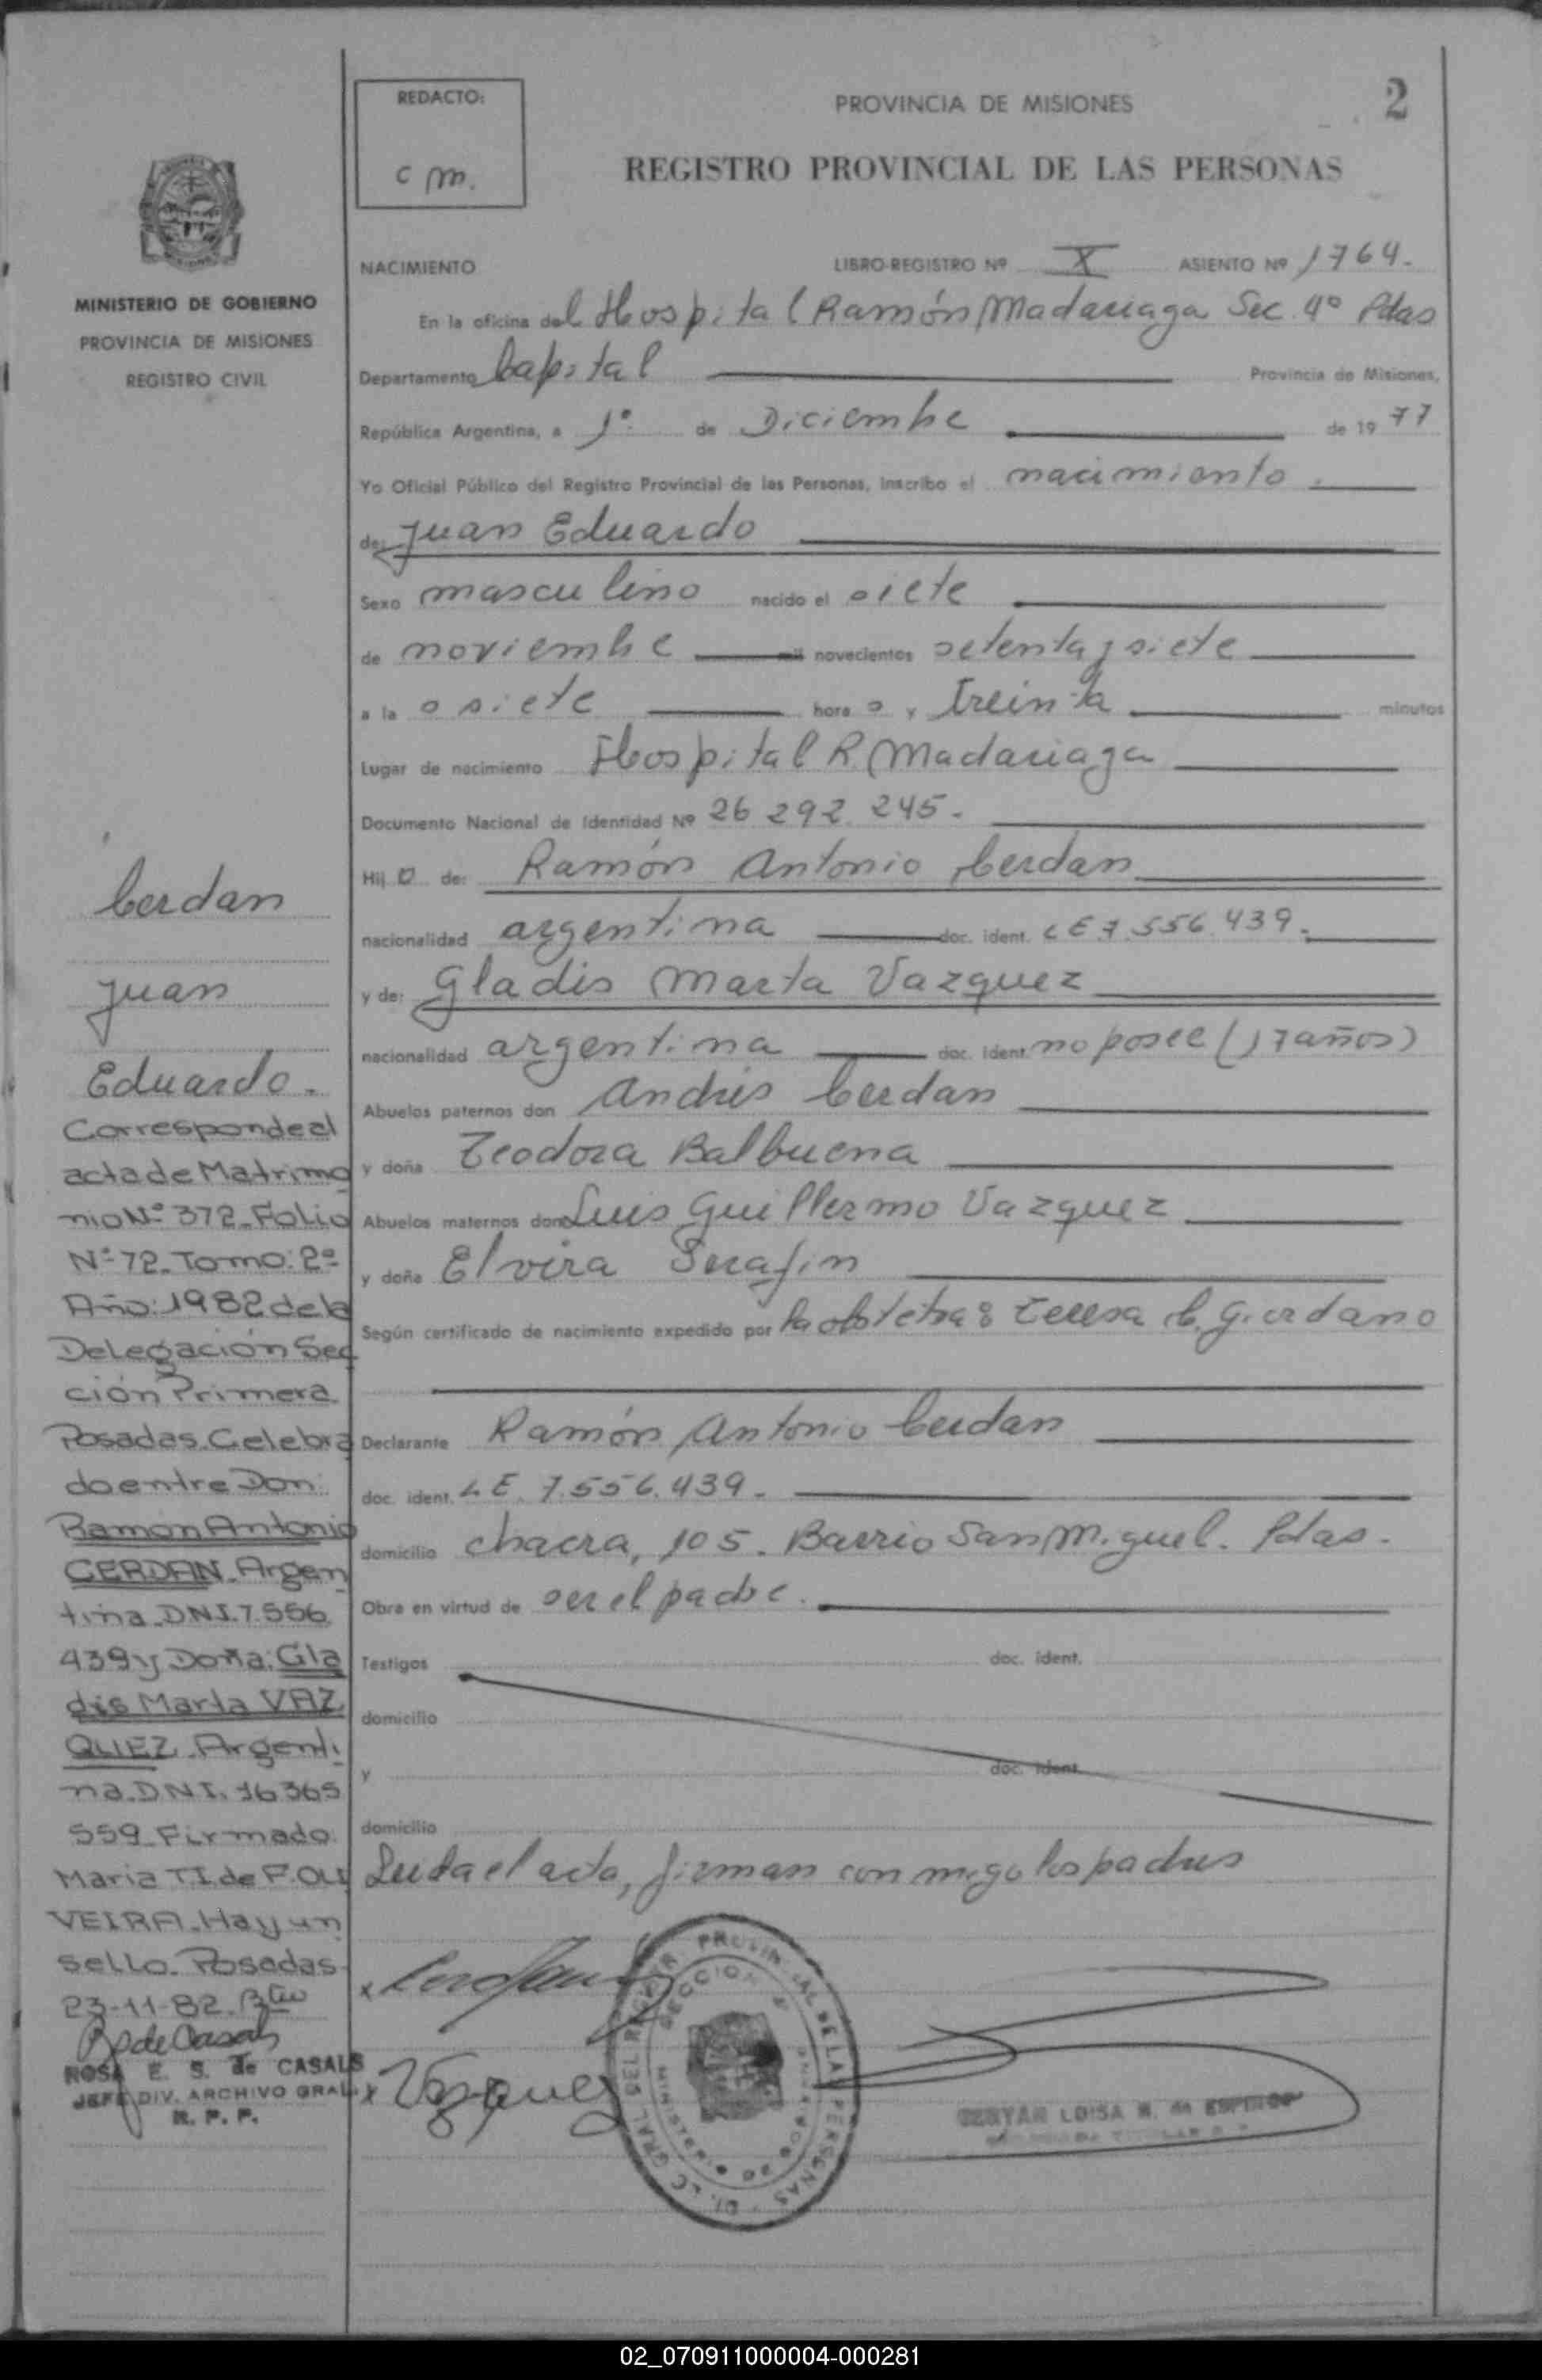 REDACTO:
C m.
PROVINCIA DE MISIONES
2
REGISTRO PROVINCIAL DE LAS PERSONAS
NACIMIENTO LIBRO-REGISTRO Nº X ASIENTO Nº 1764.
En la oficina del Hospital Ramón Madariaga Sec. 4º Pdas
Departamento Capital Provincia de Misiones,
República Argentina, a 1º de Diciembre de 1977
Yo Oficial Público del Registro Provincial de las Personas, inscribo el nacimiento
de: Juan Eduardo
Sexo masculino nacido el siete
de noviembre mil novecientos setenta y siete
a las siete horas y treinta minutos
Lugar de nacimiento Hospital R. Madariaga
Documento Nacional de Identidad Nº 26 292. 245.
Hijo de: Ramón Antonio Cerdan
nacionalidad argentina doc. ident. LE 7.556.439.
y de: Gladis Marta Vazquez
nacionalidad argentina doc. ident. no posee (17 años)
Abuelos paternos don Andrés Cerdan
y doña Teodora Balbuena
Abuelos maternos don Luis Guillermo Vazquez
y doña Elvira Serafin
Según certificado de nacimiento expedido por la obstetra: Teresa C. Giordano
Declarante Ramón Antonio Cerdan
doc. ident. LE. 7.556.439.
domicilio chacra, 105. Barrio San Miguel. Pdas.
Obra en virtud de ser el padre.
Testigos doc. ident.
domicilio
y doc. ident.
domicilio
Leida el acta, firman conmigo los padres
x Cerdan
x Vazquez
MINISTERIO DE GOBIERNO
PROVINCIA DE MISIONES
REGISTRO CIVIL
Cerdan
Juan
Eduardo.
Corresponde al
acta de Matrimo
nio Nº 372. Folio
Nº 72. Tomo: 2º
Año: 1982 de la
Delegación Sec
ción Primera
Posadas. Celebra
do entre Don:
Ramon Antonio
CERDAN. Argen
tina. DNI. 7.556.
439 y Doña: Gla
dis Marta VAZ
QUEZ. Argenti
na. DNI. 16365
559. Firmado.
Maria T I. de F. OLI
VEIRA. Hay un
sello. Posadas
23-11-82.
ROSA E. S. de CASALS
JEFE DIV. ARCHIVO GRAL.
R. P. P.
02_070911000004-000281